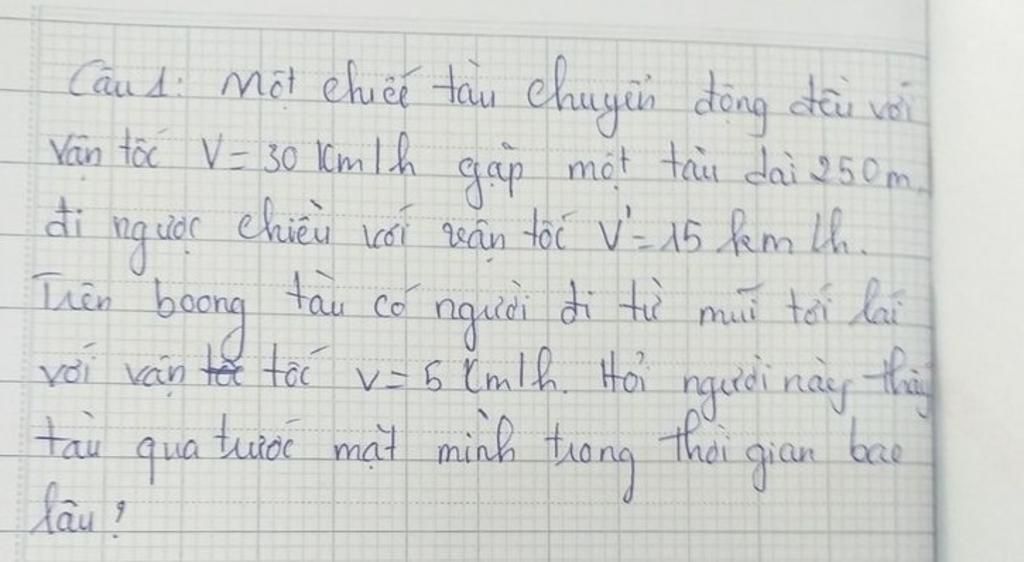 Câu 1: Một chiếc tàu chuyển động đều với
vận tốc V = 30 km/h gặp một tàu dài 250m
đi ngược chiều với vận tốc V' = 15 km/h.
Trên boong tàu có người đi từ mũi tới lái
với vận tốc v = 5 km/h. Hỏi người này thấy
tàu qua trước mặt mình trong thời gian bao
lâu?